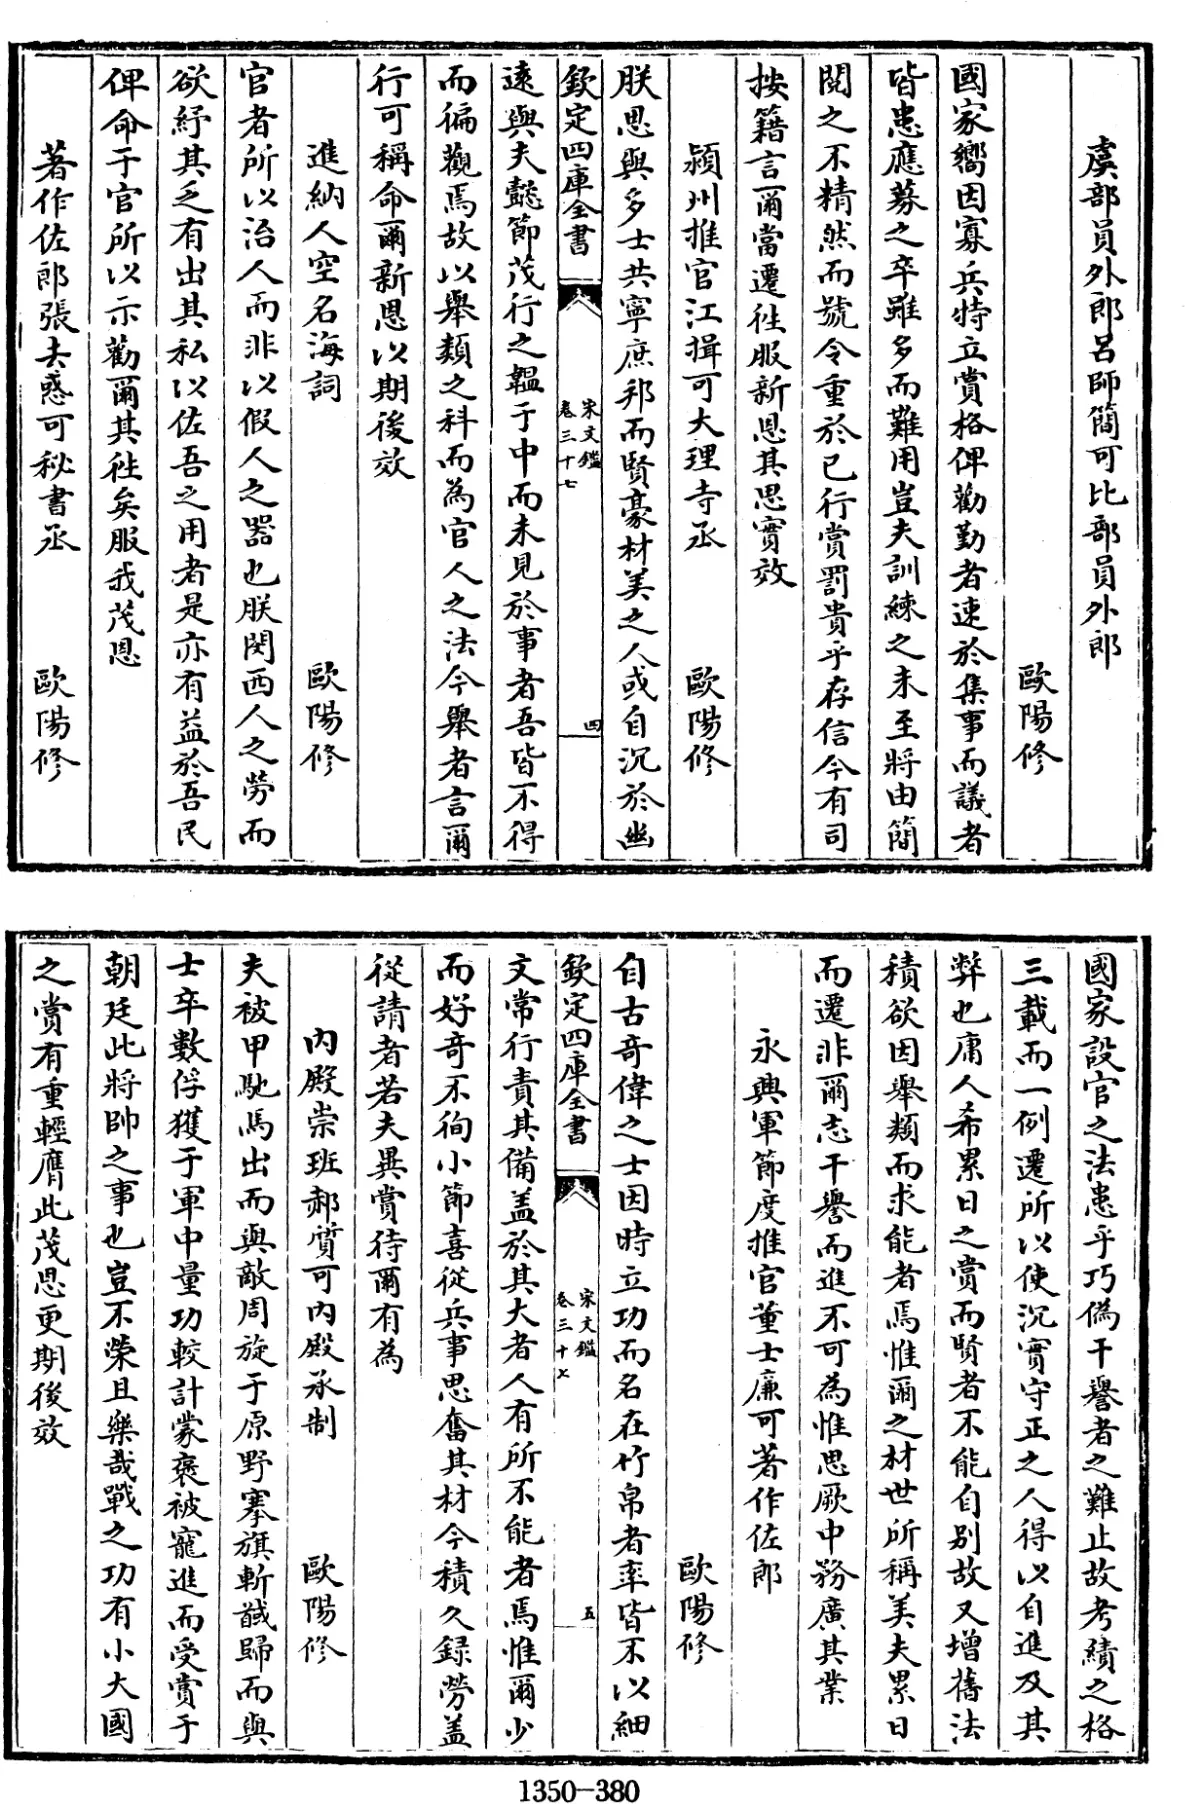 虞部員外郎呂師簡可比部員外郎
歐陽修
國家嚮因寡兵特立賞格俾勸勤者速於集事而議者
皆患應募之卒雖多而難用豈夫訓練之未至將由簡
閱之不精然而號令重於已行賞罰貴乎存信今有司
按籍言爾當遷往服新恩其思實效
潁州推官江揖可大理寺丞 歐陽修
朕思與多士共寧庶邦而賢豪材美之人或自沉於幽
欽定四庫全書 宋文鑑 卷三十七 四
遠與夫懿節茂行之韞于中而未見於事者吾皆不得
而徧觀焉故以舉類之科而為官人之法今舉者言爾
行可稱命爾新恩以期後效
進納人空名海詞 歐陽修
官者所以治人而非以假人之器也朕閔西人之勞而
欲紓其乏有出其私以佐吾之用者是亦有益於吾民
俾命于官所以示勸爾其往矣服我茂恩
著作佐郎張去惑可秘書丞 歐陽修
國家設官之法患乎巧偽干譽者之難止故考績之格
三載而一例遷所以使沉實守正之人得以自進及其
弊也庸人希累日之賞而賢者不能自别故又增舊法
積欲因舉類而求能者焉惟爾之材世所稱美夫累日
而遷非爾志干譽而進不可為惟思厥中務廣其業
永興軍節度推官董士廉可著作佐郎
歐陽修
自古奇偉之士因時立功而名在竹帛者率皆不以細
欽定四庫全書 宋文鑑 卷三十七 五
文常行責其備盖於其大者人有所不能者焉惟爾少
而好奇不徇小節喜從兵事思奮其材今積久録勞盖
從請者若夫異賞待爾有為
内殿崇班郝質可内殿承制 歐陽修
夫被甲馳馬出而與敵周旋于原野搴旗斬馘歸而與
士卒數俘獲于軍中量功較計蒙褒被寵進而受賞于
朝廷此將帥之事也豈不榮且樂哉戰之功有小大國
之賞有重輕膺此茂恩更期後效
1350-380